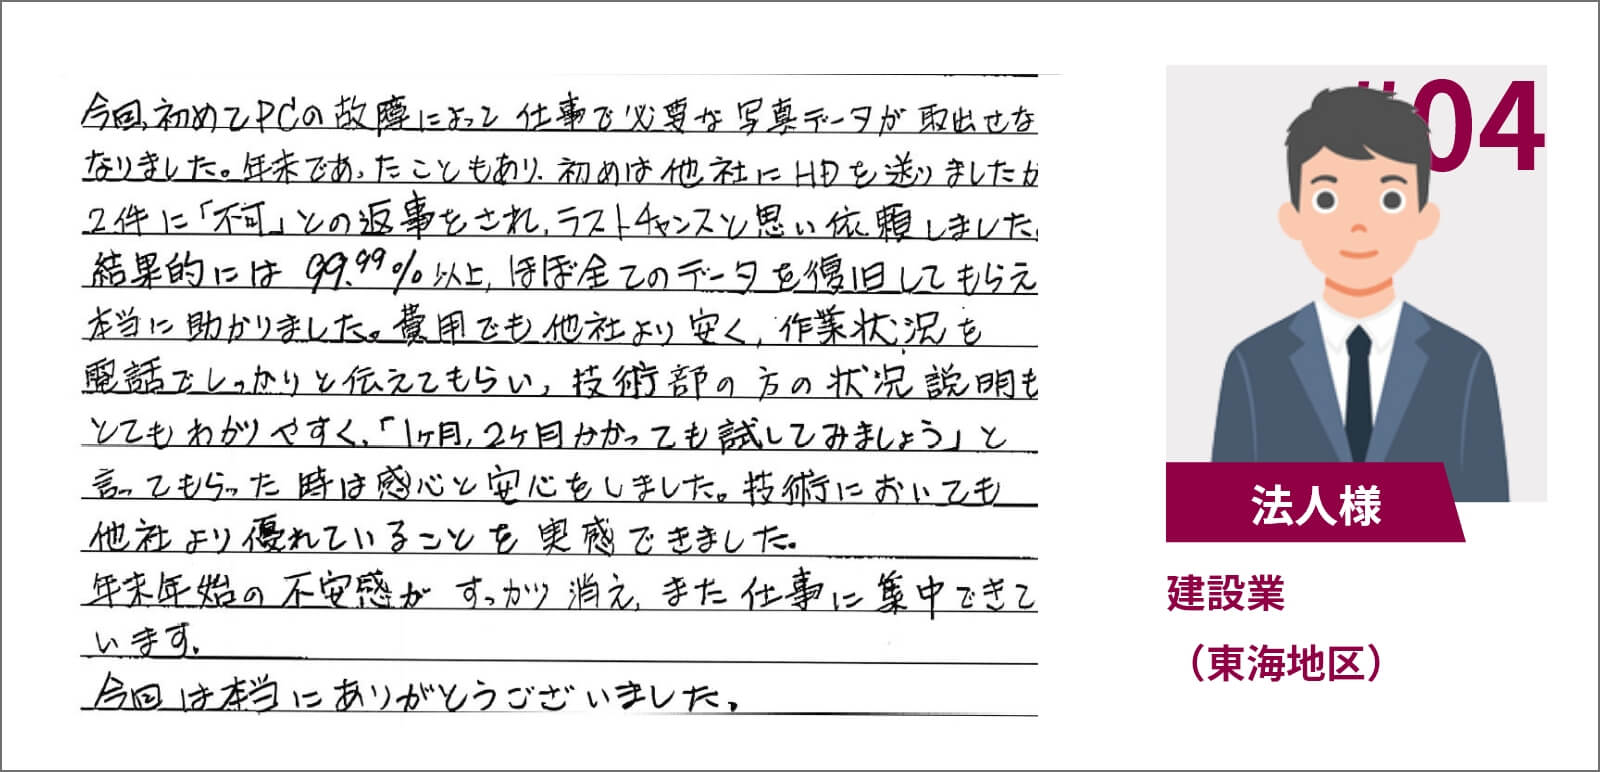 今回、初めてPCの故障によって仕事で必要な写真データが取出せな
なりました。年末であったこともあり、初めは他社にHDを送りましたが
2件に「不可」との返事をされ、ラストチャンスと思い依頼しました。
結果的には99.99%以上、ほぼ全てのデータを復旧してもらえ
本当に助かりました。費用でも他社より安く、作業状況を
電話でしっかりと伝えてもらい、技術部の方の状況説明も
とてもわかりやすく、「1ヶ月、2ヶ月かかっても試してみましょう」と
言ってもらった時は感心と安心をしました。技術においても
他社より優れていることを実感できました。
年末年始の不安感がすっかり消え、また仕事に集中できて
います。
今回は本当にありがとうございました。
#04
法人様
建設業
（東海地区）